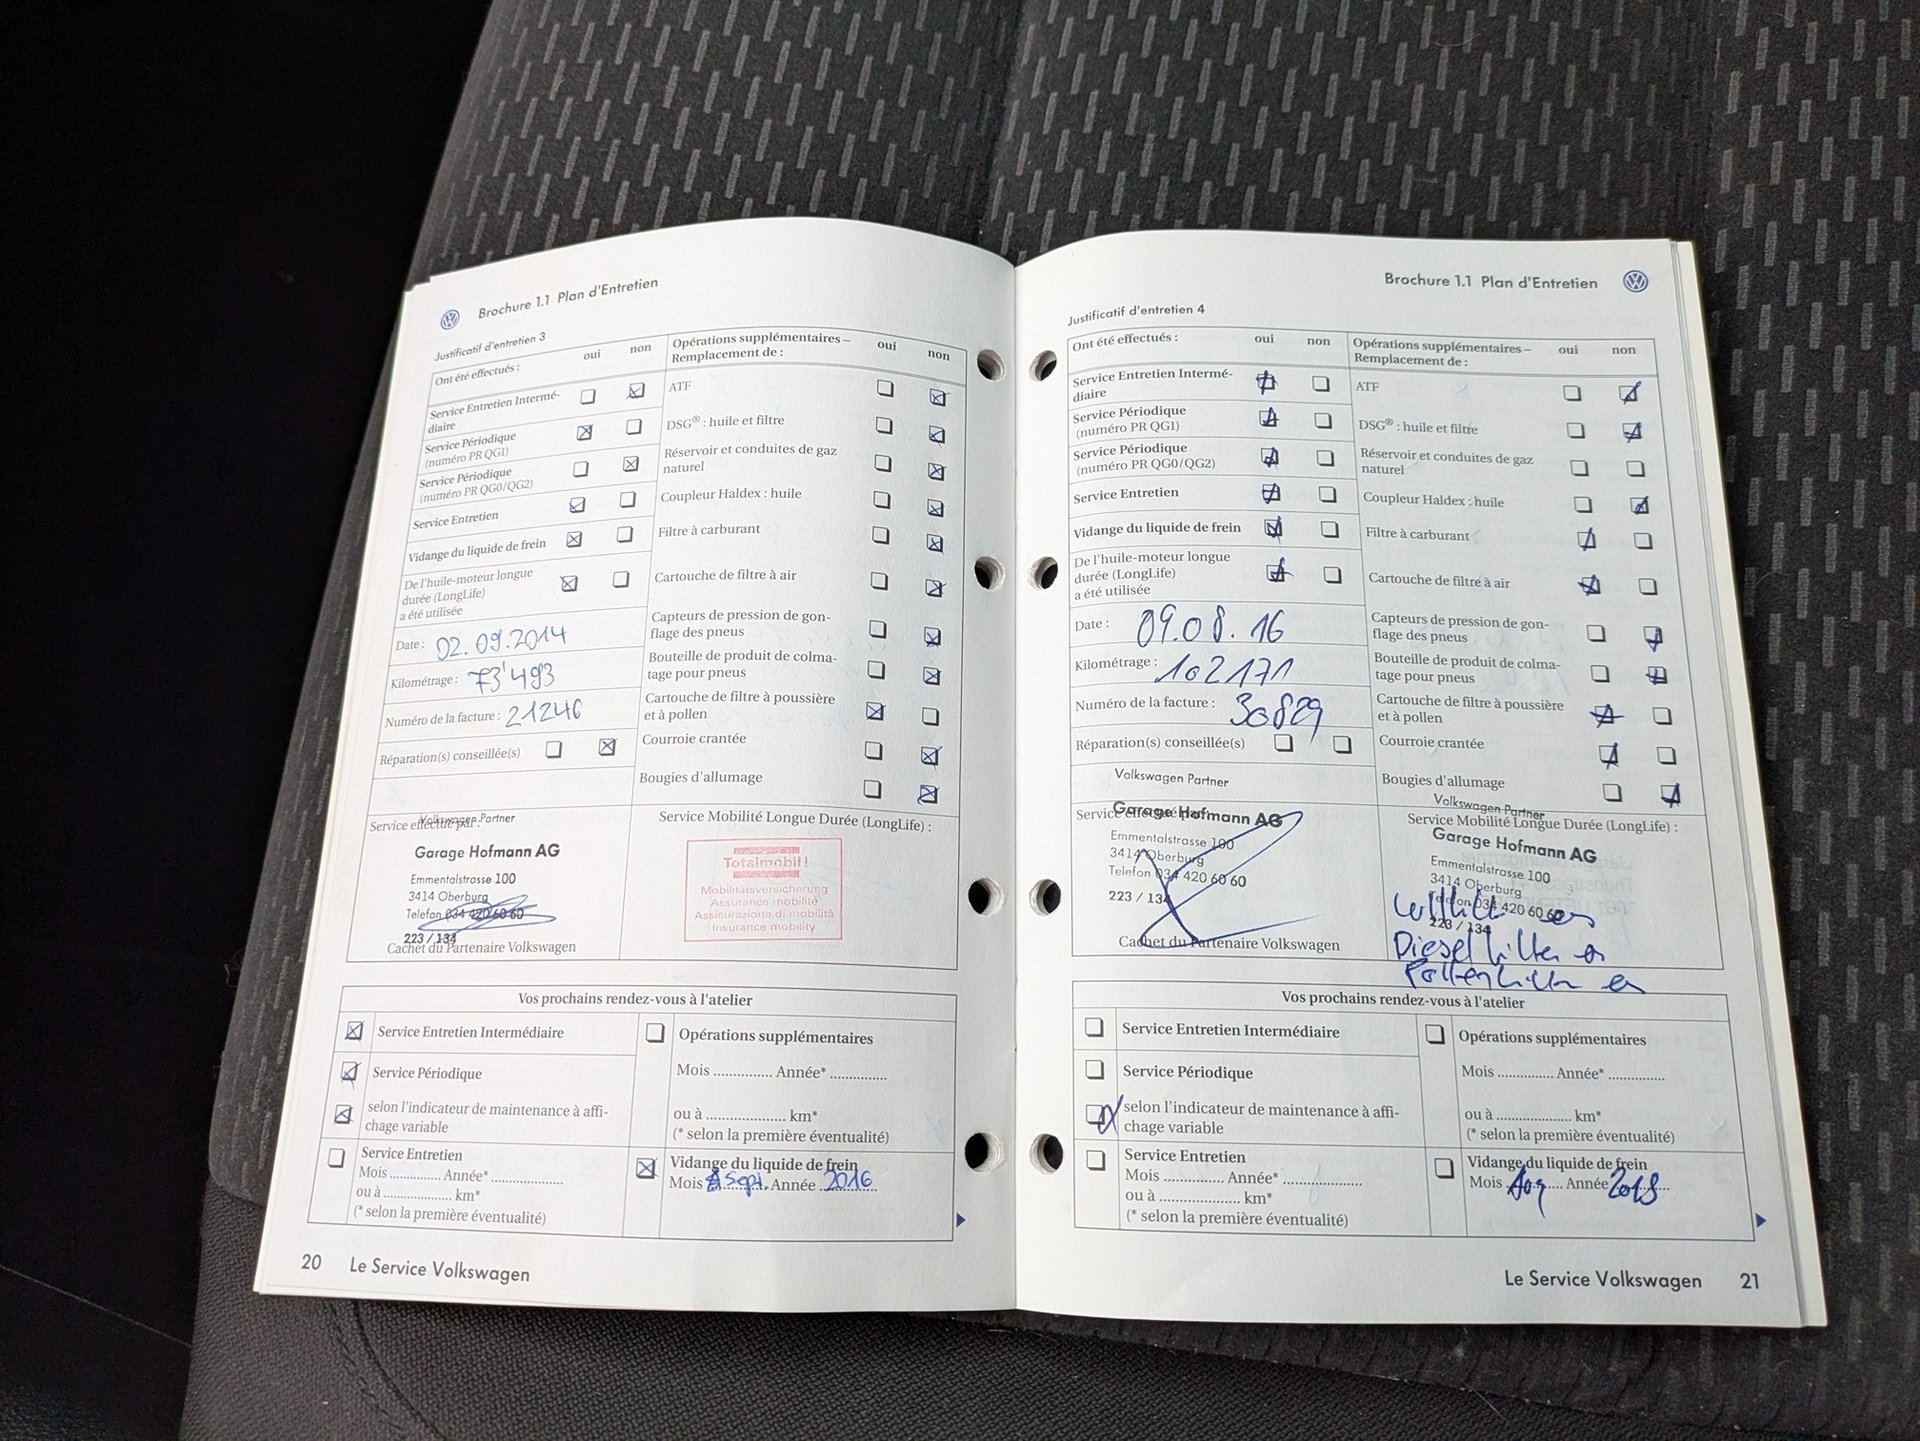 Brochure 1.1 Plan d'Entretien
Justificatif d'entretien 3
Ont été effectués :
oui
non
Service Entretien Intermé-
diaire
Service Périodique
(numéro PR QG1)
Service Périodique
(numéro PR QG0/QG2)
Service Entretien
Vidange du liquide de frein
De l'huile-moteur longue
durée (LongLife)
a été utilisée
Date : 02.09.2014
Kilométrage : 73'493
Numéro de la facture : 21246
Réparation(s) conseillée(s)
Opérations supplémentaires –
Remplacement de :
oui
non
ATF
DSG® : huile et filtre
Réservoir et conduites de gaz
naturel
Coupleur Haldex : huile
Filtre à carburant
Cartouche de filtre à air
Capteurs de pression de gon-
flage des pneus
Bouteille de produit de colma-
tage pour pneus
Cartouche de filtre à poussière
et à pollen
Courroie crantée
Bougies d'allumage
Service effectué par :
Volkswagen Partner
Garage Hofmann AG
Emmentalstrasse 100
3414 Oberburg
Telefon 034 420 60 60
223 / 134
Cachet du Partenaire Volkswagen
Service Mobilité Longue Durée (LongLife) :
Totalmobil!
Mobilitätsversicherung
Assurance mobilité
Assicurazione di mobilità
Insurance mobility
Vos prochains rendez-vous à l'atelier
Service Entretien Intermédiaire
Service Périodique
selon l'indicateur de maintenance à affi-
chage variable
Service Entretien
Mois .......... Année* ..............
ou à .............. km*
(* selon la première éventualité)
Opérations supplémentaires
Mois .............. Année* ..............
ou à .................... km*
(* selon la première éventualité)
Vidange du liquide de frein
Mois Sept. Année 2016
20 Le Service Volkswagen
Brochure 1.1 Plan d'Entretien
Justificatif d'entretien 4
Ont été effectués :
oui
non
Service Entretien Intermé-
diaire
Service Périodique
(numéro PR QG1)
Service Périodique
(numéro PR QG0/QG2)
Service Entretien
Vidange du liquide de frein
De l'huile-moteur longue
durée (LongLife)
a été utilisée
Date : 09.08.16
Kilométrage : 102171
Numéro de la facture : 30829
Réparation(s) conseillée(s)
Opérations supplémentaires –
Remplacement de :
oui
non
ATF
DSG® : huile et filtre
Réservoir et conduites de gaz
naturel
Coupleur Haldex : huile
Filtre à carburant
Cartouche de filtre à air
Capteurs de pression de gon-
flage des pneus
Bouteille de produit de colma-
tage pour pneus
Cartouche de filtre à poussière
et à pollen
Courroie crantée
Bougies d'allumage
Volkswagen Partner
Service effectué par :
Garage Hofmann AG
Emmentalstrasse 100
3414 Oberburg
Telefon 034 420 60 60
223 / 134
Cachet du Partenaire Volkswagen
Volkswagen Partner
Service Mobilité Longue Durée (LongLife) :
Garage Hofmann AG
Emmentalstrasse 100
3414 Oberburg
Telefon 034 420 60 60
223 / 134
Dieselfilter
Pollenfilter
Vos prochains rendez-vous à l'atelier
Service Entretien Intermédiaire
Service Périodique
selon l'indicateur de maintenance à affi-
chage variable
Service Entretien
Mois .......... Année* ..............
ou à .............. km*
(* selon la première éventualité)
Opérations supplémentaires
Mois .............. Année* ..............
ou à .................... km*
(* selon la première éventualité)
Vidange du liquide de frein
Mois Aug Année 2018
Le Service Volkswagen 21